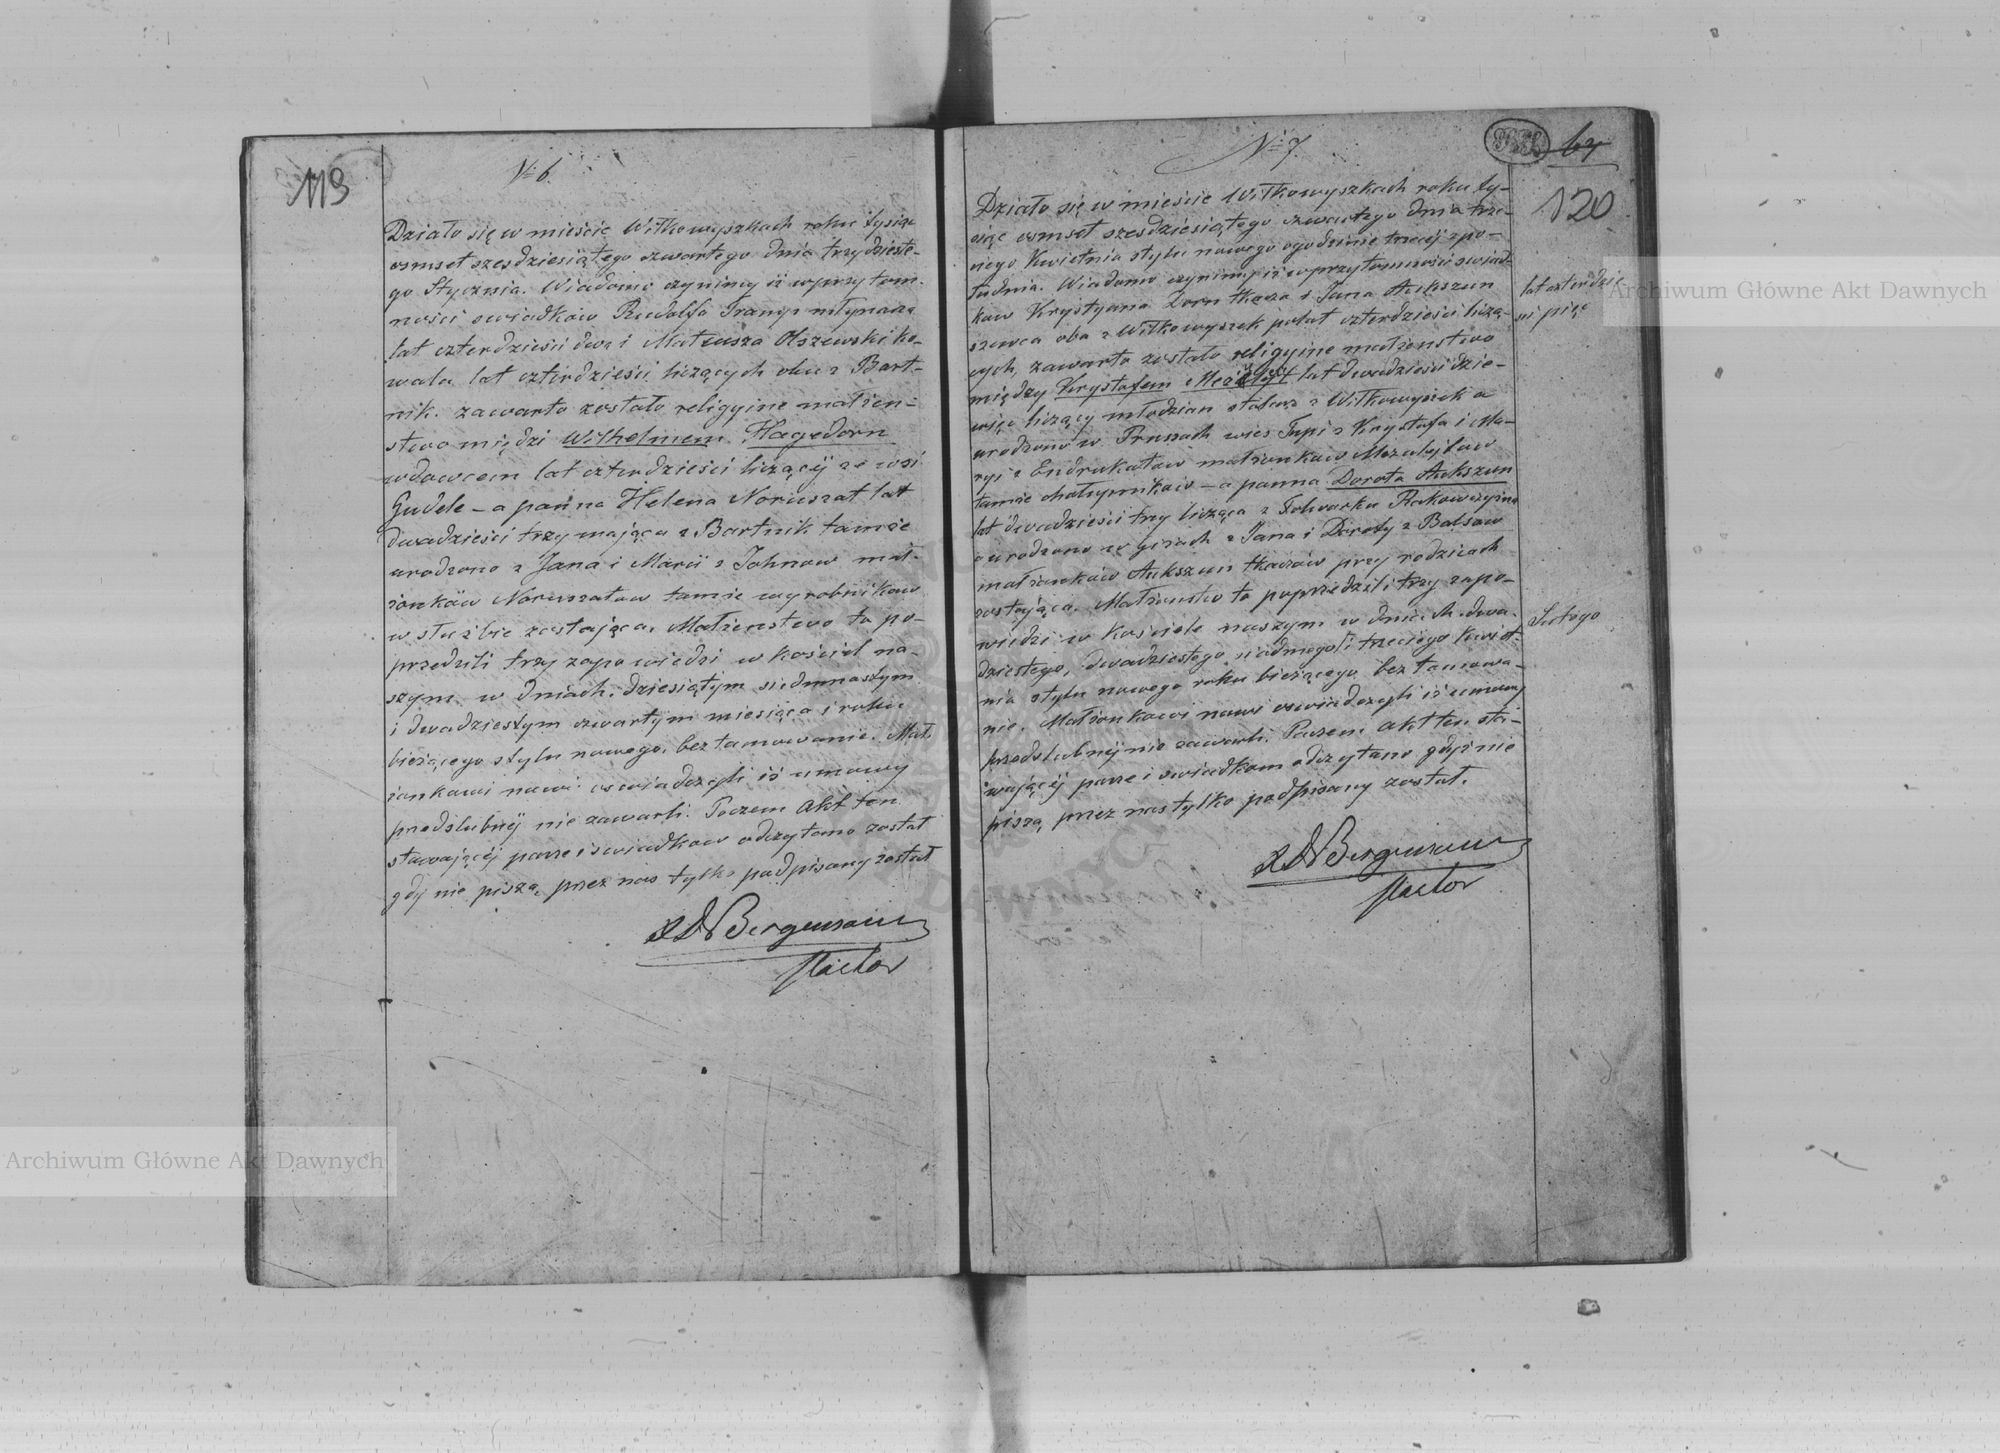 119
N° 6.
Działo się w mieście Wiłkowyszkach roku tysiąc
osmset sześdziesiątego czwartego dnia trzydzieste-
go Stycznia. Wiadomo czynimy iż w przytom-
ności swiadków Rudolfa Tramp młynarza
lat czterdzieści dwa i Mateusza Olszewski ko-
wala lat czterdzieści liczących obu z Bart-
nik. zawarto zostało religyine małżen-
stwo między Wilhelmem Hagedorn
wdowcem lat czterdzieści liczącÿ ze wsi
Gudele – a panna Helena Noruszat lat
dwadzieści trzy mająca z Bartnik tamże
urodzona z Jana i Marii z Johnow mał-
żonków Noruszatow tamże wyrobnikow
w służbie zostająca. Małżenstwo to po-
przedzili trzy zapowiedzi w kościel na-
szym w dniach. dziesiątym siedmnastym
i dwadziestym czwartym miesiąca i roku
bieżącego stylu nowego. bez tamowanie. Mał-
żonkowi nowi oswiadczyli iż umowy
przedslubnÿ nie zawarli. Poczem Akt ten
stawającÿ parze i swiadkow odczytano został
gdy nie piszą, przez nas tylko podpisany został
Pastor
N° 7.
67
120
Działo się w mieście Wiłkowyszkach roku ty-
siąc osmset szesdziesiątego czwartego dnia trze-
ciego Kwietnia stylu nowego o godzinie trzecÿ z po-
łudnia. Wiadomo czynimy iż w przytomności swiad-
kow Krystyana Dorn tkacza i Jana Aukszun
szewca oba z Wiłkowyszek po lat czterdzieści liczą-
cych, zawarto zostało religyine małżenstwo
między Krysztofem lat dwadzieści dzie-
więc liczący młodzian stolarz z Wiłkowyszek a
urodzono w Prussach wies Tupi z Krysztofa i Ma-
ryi z Endrukatow małżonkow
tamże – a panna Dorota Aukszun
lat dwadzieści trzy licząca z Folwarku
a urodzona w z Jana i Doroty z Balsow
małżonków Aukszun tkaczów przy rodzicach
zostająca. Małżenstwo to poprzedzili trzy zapo-
wiedzi w Kościele naszym w dniach. dwa-
dziestego, dwadziestego siodmego i trzeciego Kwiet-
nia stylu nowego roku bieżącego bez tamowa-
nie. Małżonkowi nowi oswiadczyli iż umowy
przedslubnÿ nie zawarli. Poczem akt ten sta-
wającÿ parze i swiadkom odczytano gdyż nie
piszą przez nas tylko podpisany został.
Pastor
lat czterdzie-
sci pięc
Lutego
Archiwum Główne Akt Dawnych
Archiwum Główne Akt Dawnych